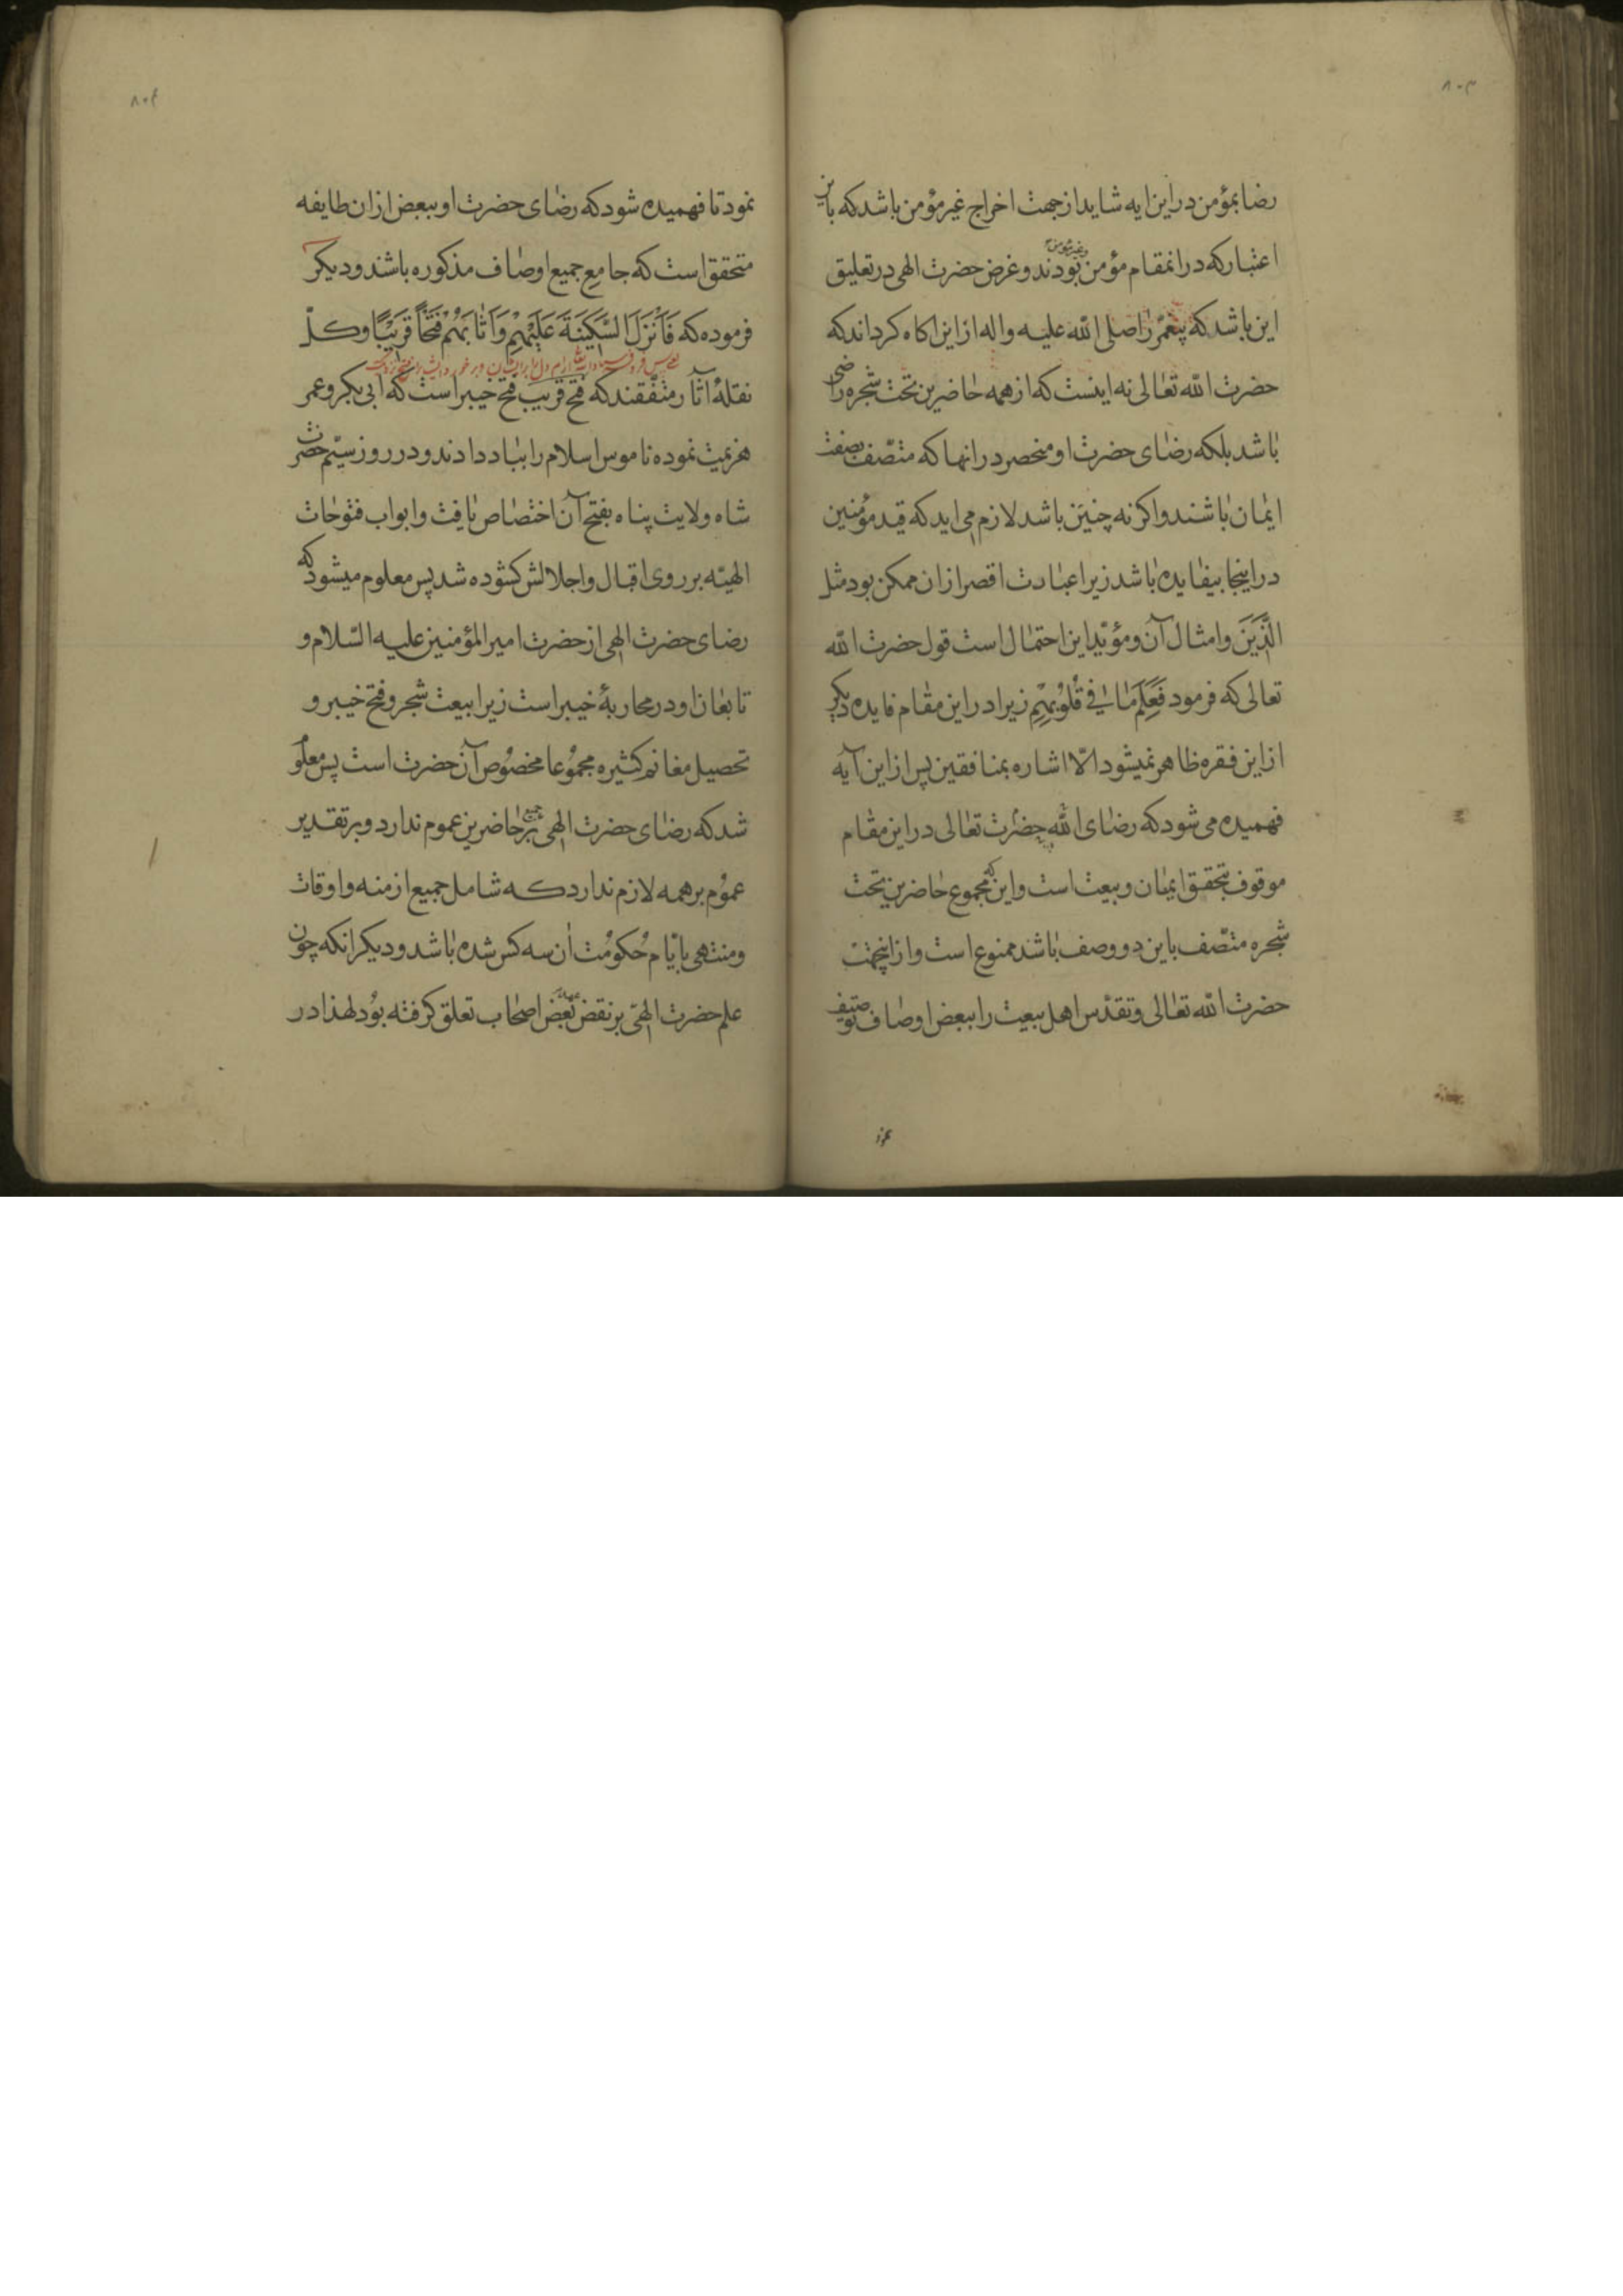 ۸۰۳
رضا بمؤمن در این ایه شاید از جهت اخراج غیر مؤمن باشد که باین
اعتبار که درانمقام مؤمن و غیر مؤمن بودند و غرض حضرت الهی در تعلیق
این باشد که پیغمبر را صلی الله علیه واله از این اکاه کرداند که
حضرت الله تعالی نه اینست که از همه حاضرین تحت شجره راضی
باشد بلکه رضای حضرت او منحصر در انها که متّصف بصفت
ایمان باشند واکر نه چنین باشد لازم می اید که قید مؤمنین
در اینجا بیفایده باشد زیرا عبارت اقصر از ان ممکن بود مثل
الَّذِینَ وامثال آن ومؤیّد این احتمال است قول حضرت الله
تعالی که فرمود فَعَلِمَ مَا فِي قُلُوبِهِمْ زیرا در این مقام فایده دیکر
از این فقره ظاهر نمیشود الّا اشاره بمنافقین پس از این آیه
فهمیده می شود که رضای الله حضرت تعالی در این مقام
موقوف بتحقق ایمان وبیعت است واین که مجموع حاضرین تحت
شجره متّصف باین دو وصف باشند ممنوع است واز اینجهت
حضرت الله تعالی وتقدّس اهل بیعت را ببعض اوصاف توصیف
نمود
۸۰۴
نمود تا فهمیده شود که رضای حضرت او ببعض از ان طایفه
متحقق است که جامع جمیع اوصاف مذکوره باشند ودیکر
فرموده که فَاَنْزَلَ السَّكِينَةَ عَلَيْهِمْ وَاَثَابَهُمْ فَتْحًا قَرِيبًا وکلّ
نقلهٔ آثار متفّقند که فتح قریب فتح خیبر است که ابی بکر وعمر
هزیمت نموده ناموس اسلام را بباد دادند ودر روز سیّم حضرت
شاه ولایت پناه بفتح آن اختصاص یافت وابواب فتوحات
الهیّه بر روی اقبال واجلالش کشوده شد پس معلوم میشود که
رضای حضرت الهی از حضرت امیر المؤمنین علیه السّلام و
تابعان او در محاربهٔ خیبر است زیرا بیعت شجر وفتح خیبر و
تحصیل مغانم کثیره مجموعا مخصوص آن حضرت است پس معلو
شد که رضای حضرت الهی بر حاضرین عموم ندارد وبر تقدیر
عموم بر همه لازم ندارد که شامل جمیع ازمنه واوقات
ومنتهی بایّام حکومت ان سه کس شده باشد ودیکر انکه چون
علم حضرت الهی بر نقض بعض اصحاب تعلق کرفته بود لهذا در